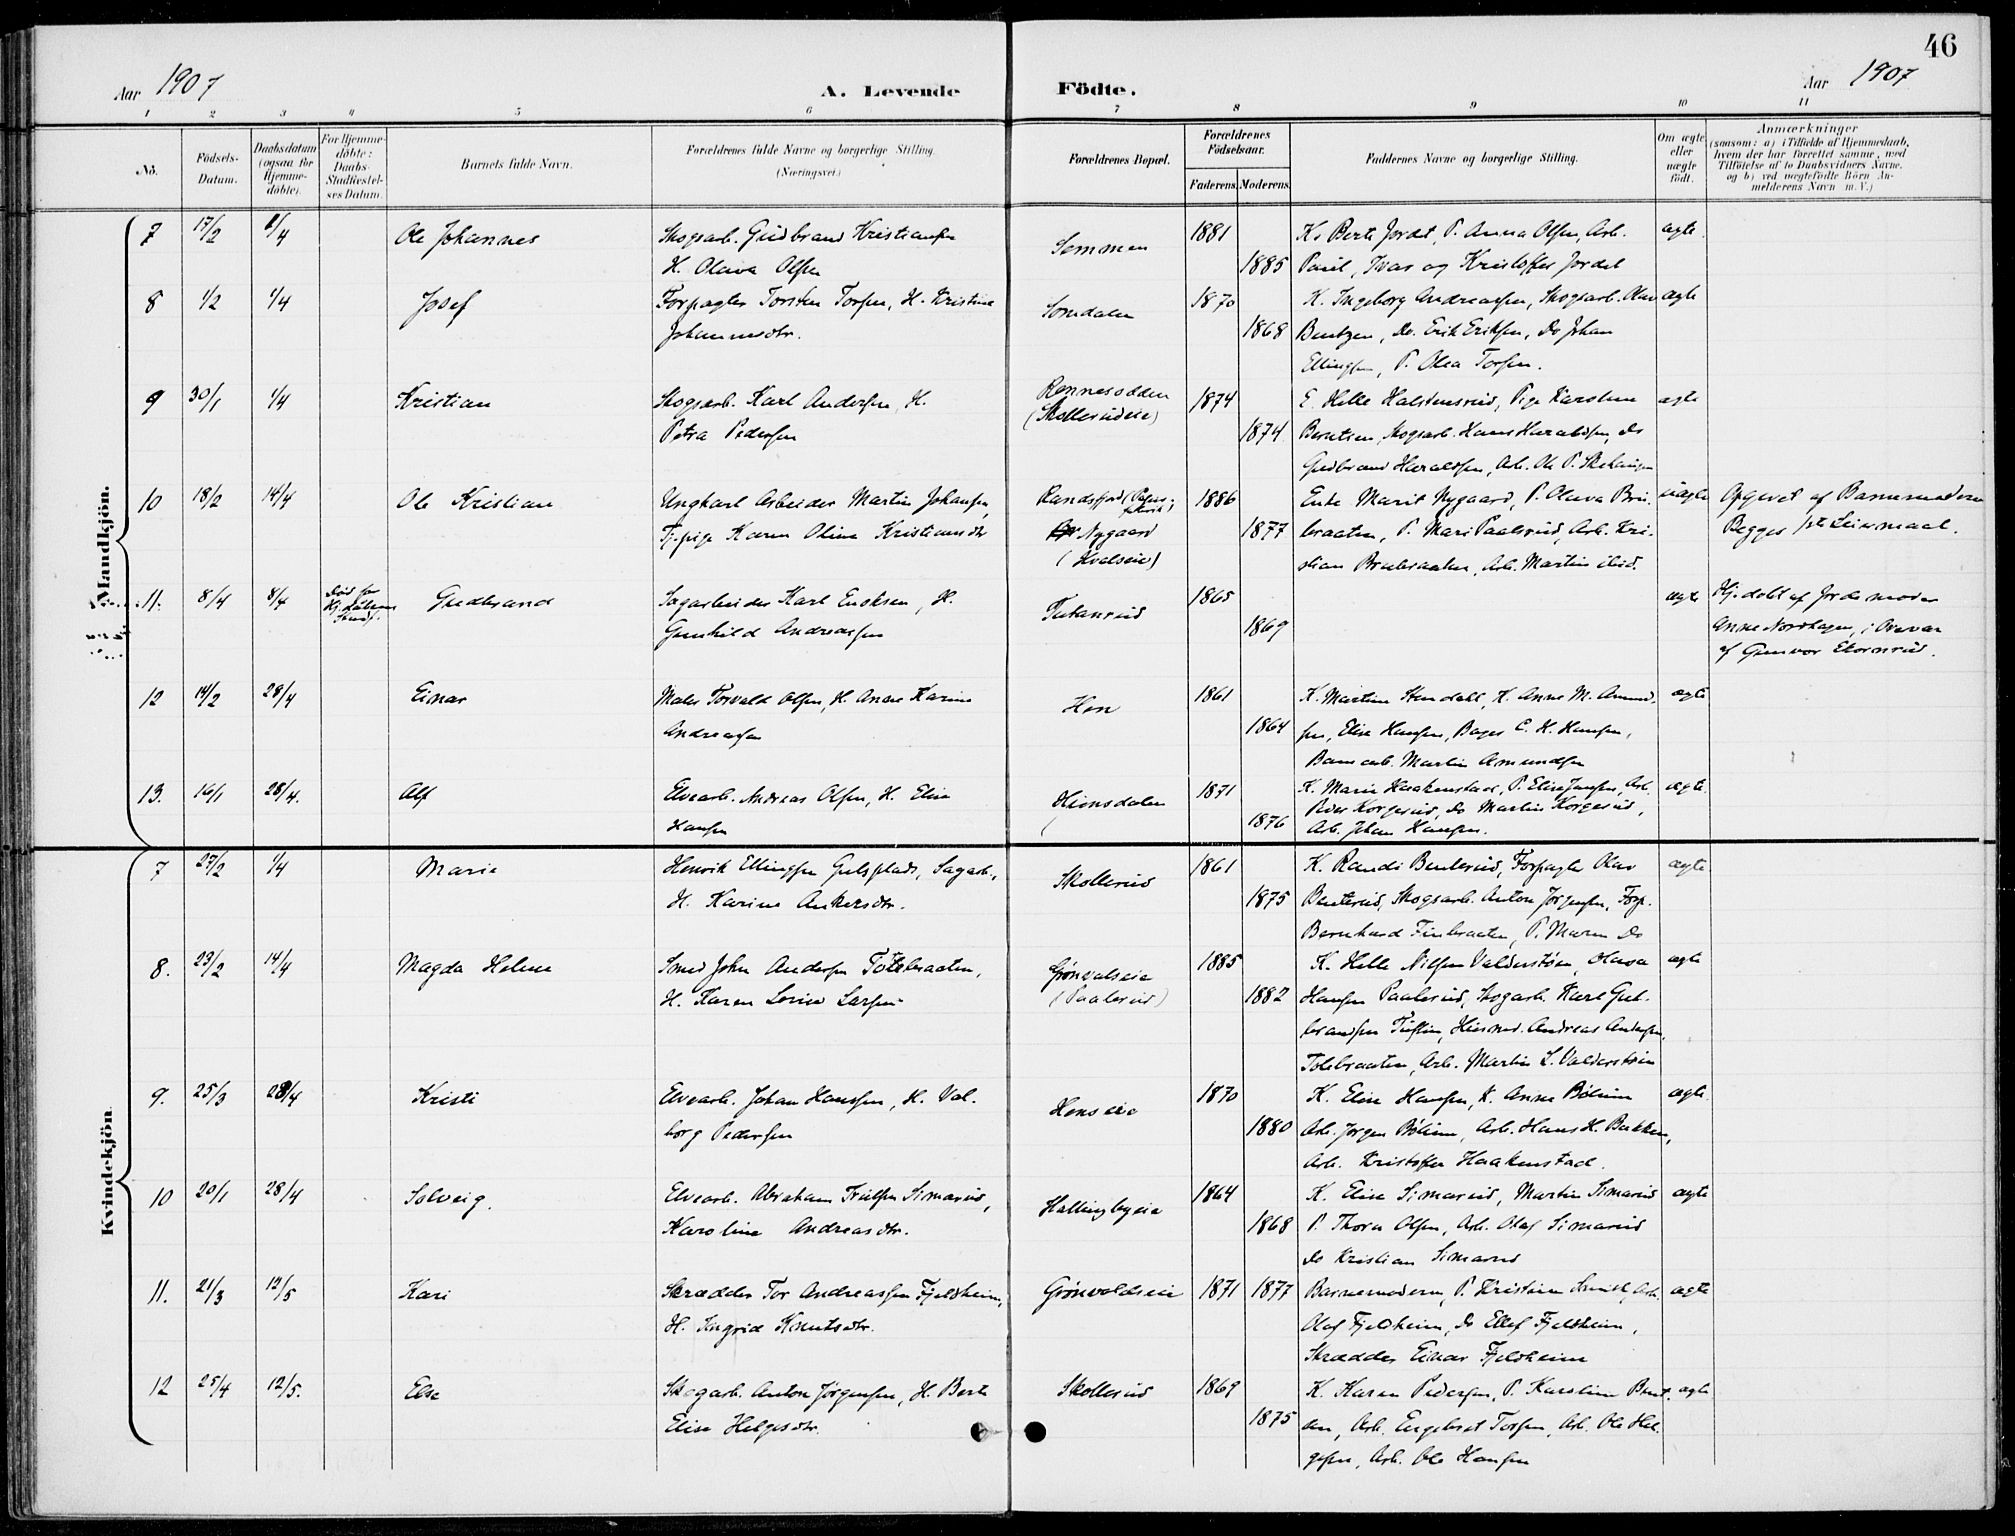 46
Aar 1907
A. Levende Födte.
Aar 1907
1 2 3 4 5 6 7 8 9 10 11
No.
Födsels-Datum.
Daabsdatum (ogsaa for Hjemmedöbte).
For Hjemmedöbte: Daabs Stadfæstelses Datum.
Barnets fulde Navn.
Forældrenes fulde Navne og borgerlige Stilling.
(Næringsvei.)
Forældrenes Bopæl.
Forældrenes Födselsaar.
Faderens. Moderens.
Faddernes Navne og borgerlige Stilling.
Om ægte eller uægte födt.
Anmærkninger
(saasom: a) i Tilfælde af Hjemmedaab, hvem der har forrettet samme, med Tilföielse af to Daabsvidners Navne, og b) ved uægtefödte Börn Anmelderens Navn m. V.)
Mandkjön.
7 17/2 1/4 Ole Johannes Skogsarb. Gudbrand Kristiansen Semmen 1881 K. Berte Jordet, P. Anna Olsen, Arb. ægte
H. Olava Olsen 1885 Paul, Ivar og Kristoffer Jordet
8 1/2 1/4 Josef Forpagter Torsten Torsen, H. Kristine Somdalen 1870 K. Ingeborg Andreassen, Skogsarb. Olav ægte
Johannesdtr. 1868 Bentzen, Do. Erik Eriksen, Do Johan
Ellingsen, P. Olea Torsen.
9 30/1 1/4 Kristian Skogsarb. Karl Andersen, H. Rønnesodden 1874 E. Helle Halstensrud, Pige Karoline ægte
Petra Pedersen (Skollerudeie) 1874 Berntsen, Skogsarb. Hans Haraldsen, Do
Gudbrand Haraldsen, Arb. Ole P.
10 18/2 14/4 Ole Kristian Ungkarl Arbeider Martin Johansen, Randsfjord (Papirfabrik); 1886 Enke Marit Nygaard, P. Olava Bru- uægte Opgivet af Barnemoderen
Tjpige Karen Oline Kristiansdtr Nygaard 1877 braaten, P. Mari Paalsrud, Arb. Kri- Begges 1ste Leiermaal.
(Hvalseie) stian Brubraaten, Arb. Martin ibid.
11. 8/4 8/4 Død før Gudbrand Sagarbeider Karl Enoksen, H. Tutanrud 1865 ægte Hj. døbt af Jordemoder
Gunhild Andreassen 1869 Anne Nordhagen, i Overvær
af Gunvor Ekornrud.
12 14/2 28/4 Einar Maler Torvald Olsen, H. Anne Karine Hen 1861 K. Martine Stendahl, K. Anne M. Amund- ægte
Andreassen 1864 sen, Elise Hansen, Bager C. H. Hansen,
Banearb. Martin Amundsen
13. 16/1 28/4. Alf Elvearb. Andreas Olsen, H. Elise Hjonsdalen 1871 K. Marie Haakenstad, P. Elise Jansen, Arb. ægte.
Hansen 1876 Korgerud, Do Martin Korgerud,
Arb. Johan Hansen.
Kvindekjön
7 27/2 1/4 Marie Henrik Ellingsen Gulsplads, Sagarb., Skollerud 1861 K. Randi Benterud, Forpagter Olav ægte
H. Karine Ankersdtr. 1875 Benterud, Skogsarb. Anton Jørgensen, Forp.
Bernhard Finbraaten, P. Maren Do
8. 23/2 14/4 Magda Helene Smed John Andersen Tolebraaten, Grønvalseie 1885 K. Helle Nilsen Valderstøen, Olava ægte
H. Karen Lovise Larsen (Paalerud) 1882 Hansen Paalerud, Skogarb. Karl Gul-
brandsen Tuften, Husmd. Andreas Andersen,
Tolebraaten, Arb. Martin L. Valderstøen
9. 25/3 28/4 Kristi Elvearb. Johan Hansen, H. Val- Henseie 1870 K. Elise Hansen, K. Anne Bølum ægte.
borg Pedersen 1880 Arb. Jørgen Bølum, Arb. Hans H. Bakken,
Arb. Kristoffer Haakenstad.
10 20/1 28/4 Solveig. Elvearb. Abraham Trulsen Simarud, Hallingbyeie 1864 K. Elise Simarud, Martin Simarud ægte
Karoline Andreasdtr. 1868 P. Thora Olsen, Arb. Olaf Simarud
Do Kristian Simarud
11. 21/3 12/5 Kari Skrædder Tor Andreassen Fjeldheim, Grønvoldseie 1871 1877 Barnemoderen, P. Kristine Arb. ægte
H. Ingrid Knutsdtr. Olaf Fjeldheim, Do Ellef Fjeldheim,
Skrædder Einar Fjeldheim
12 25/4 12/5. Else Skogarb. Anton Jørgensen, H. Berte Skollerud 1869 K. Karen Pedersen, P. Karoline Bent- ægte
Elise Helgesdtr. 1875 Arb. Engebret Torsen, Arb. Ole Hel-
gesen, Arb. Ole Hansen